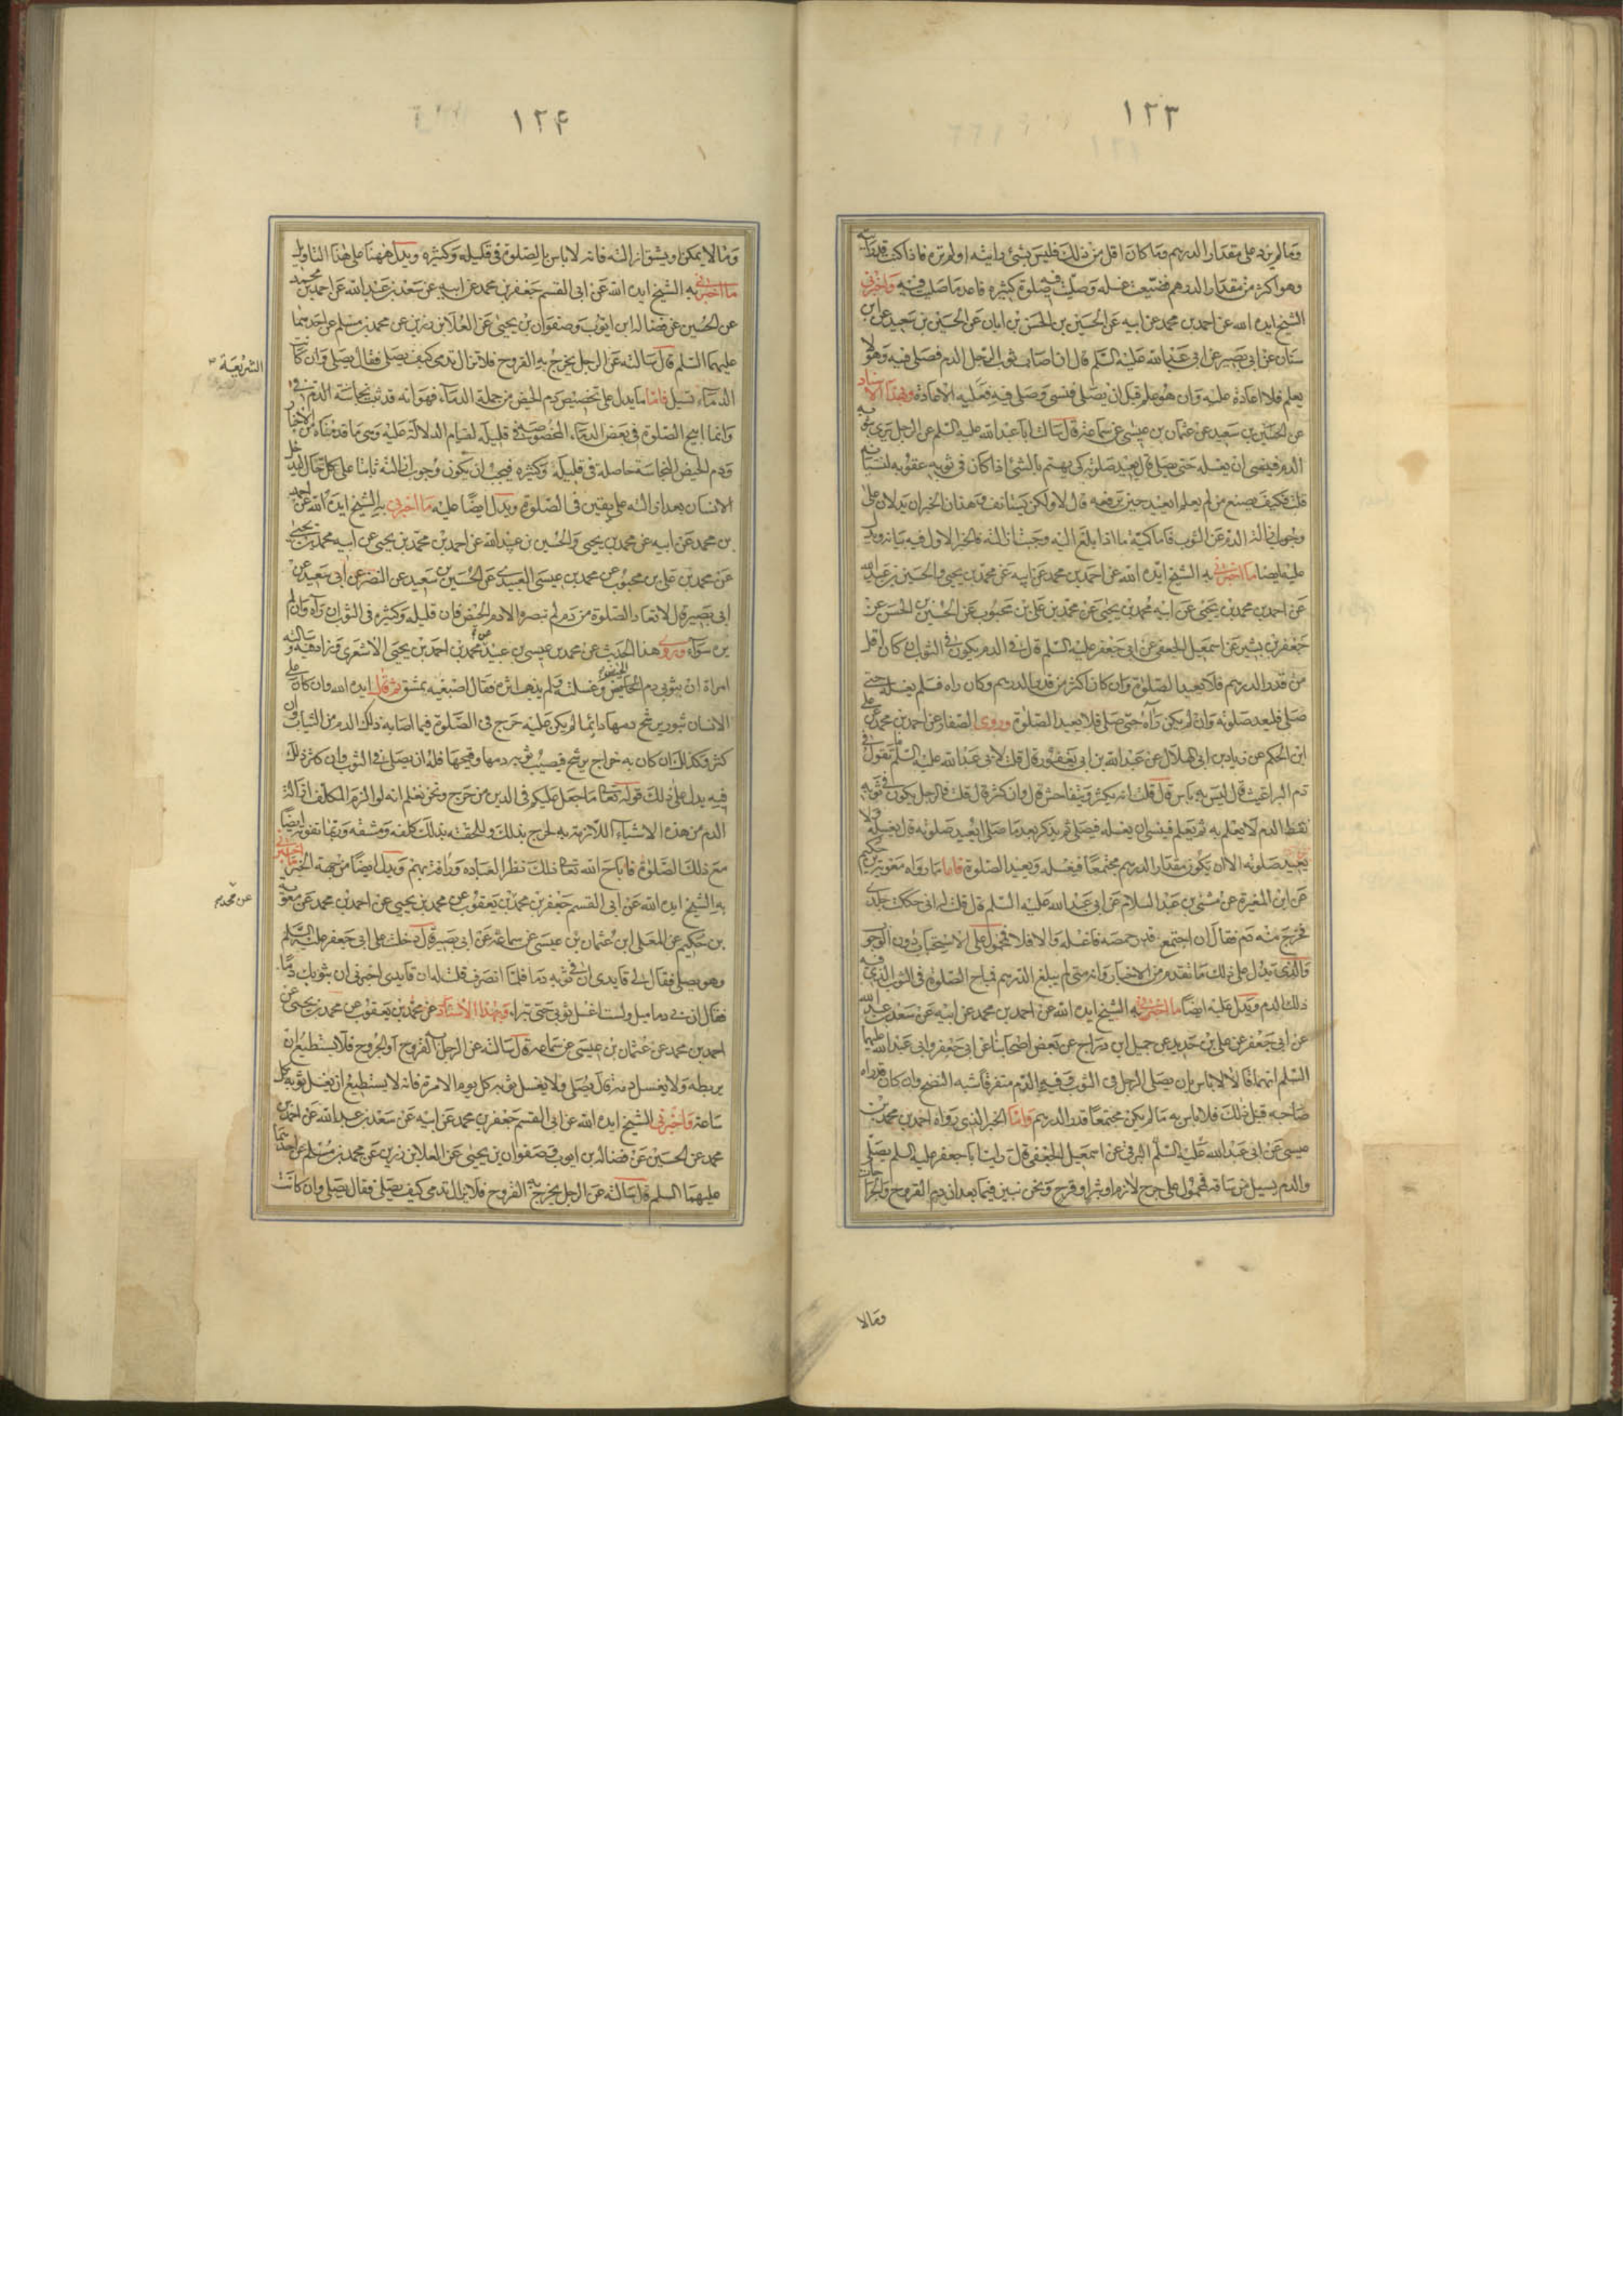 ١٢٣
وما لم يزد على مقدار الدرهم وما كان اقل من ذلك فليس بشئ رايته او لم تره فاذا كنت قد رايته
وهو اكثر من مقدار الدرهم فضيعت غسله وصليت فيه صلوة كثيرة فاعد ما صليت فيه واخبرني
الشيخ ايده الله عن احمد بن محمد عن ابيه عن الحسين بن الحسن بن ابان عن الحسين بن سعيد عن ابن
سنان عن ابي بصير عن ابي عبد الله عليه السلم قال ان اصاب ثوب الرجل الدم فصلى فيه وهو لا
يعلم فلا اعادة عليه وان هو علم قبل ان يصلى فنسى وصلى فيه فعليه الاعادة وبهذا الاسناد
عن الحسين بن سعيد عن عثمان بن عيسى عن سماعة قال سالت ابا عبد الله عليه السلم عن الرجل يرى بثوبه
الدم فينسى ان يغسله حتى يصلى قال يعيد صلوته كي يهتم بالشئ اذا كان في ثوبه عقوبة لنسيانه
قلت فكيف يصنع من لم يعلم ايعيد حين يرفعه قال لا ولكن يستانف وهذان الخبران يدلان على
وجوب ازالة الدم عن الثوب فاما كمية ما اذا بلغ اليه وجبت ازالته فالخبر الاول فيه بيانه ويدل
عليه ايضا ما اخبرني به الشيخ ايده الله عن احمد بن محمد عن ابيه عن محمد بن يحيى والحسين بن عبيد الله
عن احمد بن محمد بن يحيى عن ابيه محمد بن يحيى عن محمد بن على بن محبوب عن الحسين بن الحسن عن
جعفر بن بشير عن اسمعيل الجعفي عن ابي جعفر عليه السلم قال في الدم يكون في الثوب ان كان اقل
من قدر الدرهم فلا يعيد الصلوة وان كان اكثر من قدر الدرهم وكان راه فلم يغسله حتى
صلى فليعد صلوته وان لم يكن رآه حتى صلى فلا يعيد الصلوة وروى الصفار عن احمد بن محمد عن على
ابن الحكم عن زياد بن ابي الحلال عن عبد الله بن ابي يعفور قال قلت لابي عبد الله عليه السلم ما تقول في
دم البراغيث قال ليس به باس قال قلت انه يكثر ويتفاحش قال وان كثر قال قلت فالرجل يكون في ثوبه
نقط الدم لا يعلم به ثم يعلم فينسى ان يغسله فيصلى ثم يذكر بعد ما صلى ايعيد صلوته قال يغسله ولا
يعيد صلوته الا ان يكون مقدار الدرهم مجتمعا فيغسله ويعيد الصلوة فاما ما رواه معوية بن حكيم
عن ابن المغيرة عن مثنى بن عبد السلام عن ابي عبد الله عليه السلم قال قلت له اني حككت جلدي
فخرج منه دم فقال ان اجتمع قدر حمصة فاغسله والا فلا فمحمول على الاستحباب دون الوجوب
والذي يدل على ذلك ما تقدم من الاخبار وانه متى لم يبلغ الدرهم فباح الصلوة في الثوب الذي فيه
ذلك الدم ويدل عليه ايضا ما اخبرني به الشيخ ايده الله عن احمد بن محمد عن ابيه عن سعد بن عبد الله
عن ابي جعفر عن على بن حديد عن جميل ابن دراج عن بعض اصحابنا عن ابي جعفر وابي عبد الله عليهما
السلم انهما قالا لا باس بان يصلى الرجل في الثوب وفيه الدم متفرقا شبه النضح وان كان قد راه
صاحبه قبل ذلك فلا باس به ما لم يكن مجتمعا قدر الدرهم واما الخبر الذي رواه احمد بن محمد بن
عيسى عن ابي عبد الله عليه السلم البرقي عن اسمعيل الجعفي قال رايت ابا جعفر عليه السلم يصلى
والدم يسيل من ساقه فمحمول على جرح لازم او بثر او قرح ونحن نبين فيما بعد ان دم القروح والجراحات
ومالا
١٢۴
ومالا يمكن او يشق ازالته فانه لا باس بالصلوة في قليله وكثيره ويدل ههنا على هذا التاويل
ما اخبرني به الشيخ ايده الله عن ابي القسم جعفر بن محمد عن ابيه عن سعد بن عبد الله عن احمد بن محمد
عن الحسين عن فضالة ابن ايوب وصفوان بن يحيى عن العلا بن رزين عن محمد بن مسلم عن احدهما
عليهما السلم قال سالته عن الرجل يخرج به القروح فلا تزال تدمى كيف يصلى فقال يصلى وان كانت
الدماء تسيل فاما ما يدل على تخصيص دم الحيض من جملة الدماء فهو انه قد ثبت نجاسة الدم في
الشريعة
وانما ابيح الصلوة في بعض الدماء المخصوصة في قليله لقيام الدلالة عليه وسى ما قدمناه من الاخبار
ودم الحيض النجاسة حاصلة في قليله وكثيره فيجب ان يكون وجوب ازالته ثابتا على كل حال ليدخل
الانسان بعد ازالته على يقين في الصلوة ويدل ايضا عليه ما اخبرني به الشيخ ايده الله عن احمد
بن محمد عن ابيه عن محمد بن يحيى والحسين بن عبيد الله عن احمد بن محمد بن يحيى عن ابيه محمد بن يحيى
عن محمد بن على بن محبوب عن محمد بن عيسى العبيدي عن الحسين بن سعيد عن النضر عن ابي سعيد عن
ابي بصير قال لا تعاد الصلوة من دم لم تبصره الا دم الحيض فان قليله وكثيره في الثوب ان رآه وان لم
يره سوآء وروى هذا الحديث عن محمد بن عيسى بن عبيد محمد بن احمد بن يحيى الاشعري وزاد فيه وسالته
امراة ان بثوبي دم الحائض وغسلته فلم يذهب اثره فقال اصبغيه بمشق ثم قال ايده الله وان كان على
الانسان بثور يرشح دمها دائما لم يكن عليه حرج في الصلوة فيما اصابه ذلك الدم من الثياب وان
كثر وكذلك ان كان به خراج يرشح فيصيب ثوبه دمها وقيحها فله ان يصلى في الثوب وان كثر ذلك
فيه يدل على ذلك قوله تعا ما جعل عليكم في الدين من حرج ونحن نعلم انه لو الزم المكلف ازالة
الدم من هذه الاشياء اللازمة به لحرج بذلك وللحقته بذلك كلفة ومشقة وربما تفوته ايضا
مع ذلك الصلوة فاباح الله تعا ذلك نظرا لعباده ورافة بهم ويدل ايضا من جهة الخبر ما اخبرني
به الشيخ ايده الله عن ابي القسم جعفر بن محمد بن يعقوب عن محمد بن يحيى عن احمد بن محمد عن معوية
عن محمد
بن حكيم عن المعلى ابن عثمان بن عيسى عن سماعة عن ابي بصير قال دخلت على ابي جعفر عليه السلم
وهو يصلى فقال لي قايدي ان في ثوبه دما فلما انصرف قلت له ان قايدي اخبرني ان بثوبك دما
فقال ان بي دماميل ولست اغسل ثوبي حتى تبراء وبهذا الاسناد عن محمد بن يعقوب عن محمد بن يحيى عن
احمد بن محمد عن عثمان بن عيسى عن سماعة قال سالته عن الرجل به القروح او الجروح فلا يستطيع ان
يربطه ولا يغسل دمه قال يصلى ولا يغسل ثوبه كل يوم الا مرة فانه لا يستطيع ان يغسل ثوبه كل
ساعة واخبرني الشيخ ايده الله عن ابي القسم جعفر بن محمد عن ابيه عن سعد بن عبد الله عن احمد بن
محمد عن الحسين عن فضالة بن ايوب وصفوان بن يحيى عن العلا بن رزين عن محمد بن مسلم عن احدهما
عليهما السلم قال سالته عن الرجل يخرج به القروح فلا يزال تدمى كيف يصلى فقال يصلى وان كانت